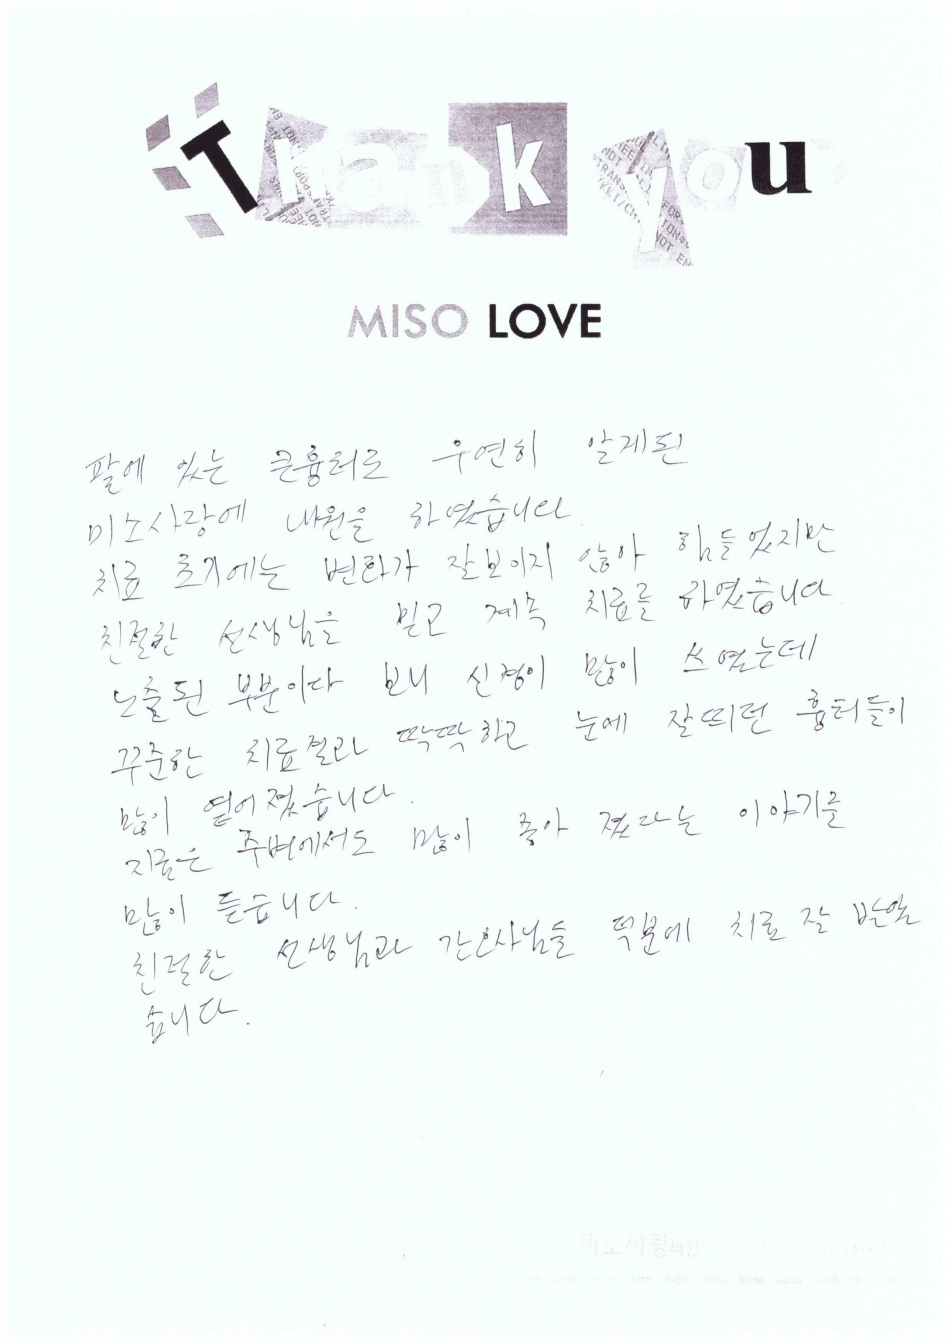 Thank you
MISO LOVE
팔에 있는 큰흉터로 우연히 알게된
미소사랑에 내원을 하였습니다.
치료 초기에는 변화가 잘보이지 않아 힘들었지만
친절한 선생님을 믿고 계속 치료를 하였습니다
노출된 부분이다 보니 신경이 많이 쓰였는데
꾸준한 치료결과 딱딱하고 눈에 잘띄던 흉터들이
많이 옅어졌습니다.
지금은 주변에서도 많이 좋아 졌다는 이야기를
많이 듣습니다.
친절한 선생님과 간호사님들 덕분에 치료 잘 받았
습니다.
미소사랑의원